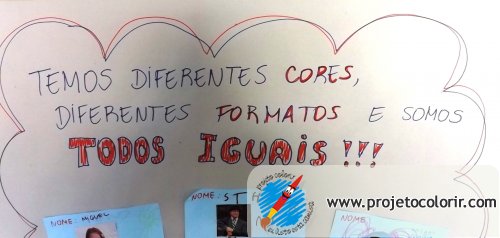 TEMOS DIFERENTES CORES,
DIFERENTES FORMATOS E SOMOS
TODOS IGUAIS !!!
NOME: MIGUEL
NOME: ST
NOME:
projeto colorir
www.projetocolorir.com